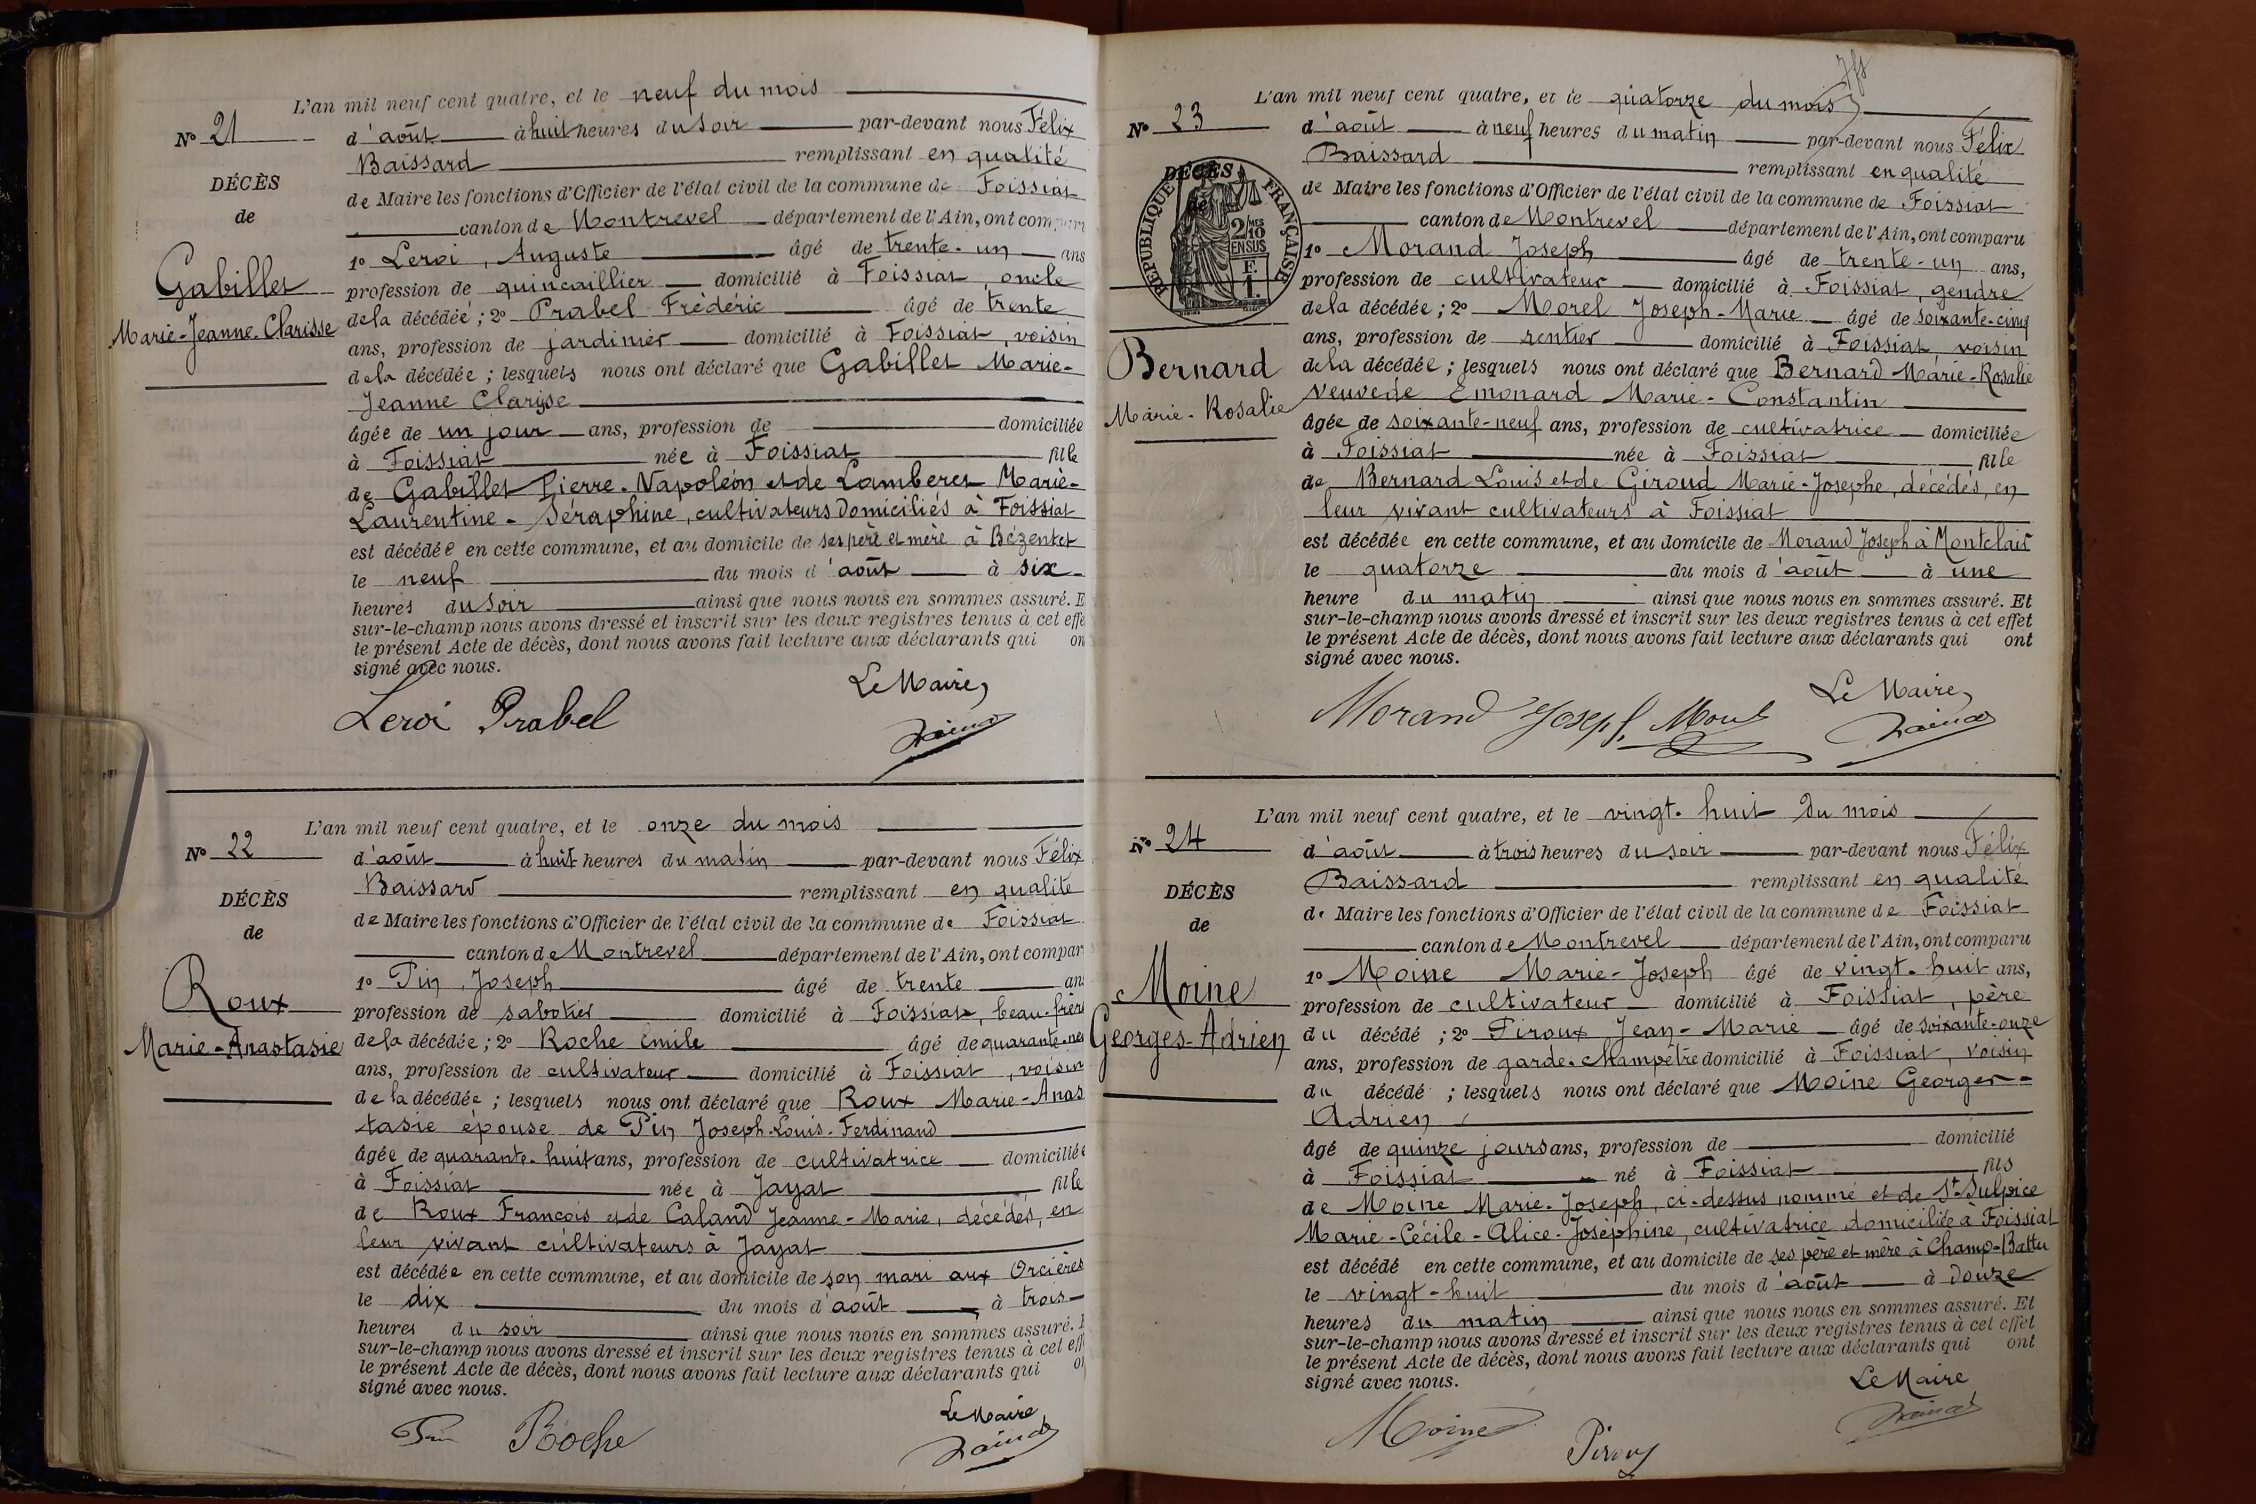 L'an mil neuf cent quatre, et le neuf du mois
N° 21
d'août à huit heures du soir par-devant nous Félix
Baissard remplissant en qualité
DÉCÈS
de Maire les fonctions d'Officier de l'état civil de la commune de Foissiat
de
canton de Montrevel département de l'Ain, ont comparu
1° Leroi, Auguste âgé de trente-un ans
Gabillet
profession de quincaillier domicilié à Foissiat, oncle
Marie-Jeanne-Clarisse
de la décédée ; 2° Prabel Frédéric âgé de trente
ans, profession de jardinier domicilié à Foissiat, voisin
de la décédée ; lesquels nous ont déclaré que Gabillet Marie-
Jeanne Clarisse
âgée de un jour ans, profession de domiciliée
à Foissiat née à Foissiat fille
de Gabillet Pierre-Napoléon et de Lamberet Marie-
Laurentine-Séraphine, cultivateurs domiciliés à Foissiat
est décédée en cette commune, et au domicile de ses père et mère à Bézentet
le neuf du mois d'août à six
heures du soir ainsi que nous nous en sommes assuré. E
sur-le-champ nous avons dressé et inscrit sur les deux registres tenus à cet effe
le présent Acte de décès, dont nous avons fait lecture aux déclarants qui on
signé avec nous.
Le Maire,
Leroi Prabel
L'an mil neuf cent quatre, et le onze du mois
N° 22
d'août à huit heures du matin par-devant nous Félix
Baissard remplissant en qualité
DÉCÈS
de Maire les fonctions d'Officier de l'état civil de la commune de Foissiat
de
canton de Montrevel département de l'Ain, ont compar
1° Pin, Joseph âgé de trente ans
Roux
profession de sabotier domicilié à Foissiat, beau-frère
Marie-Anastasie
de la décédée ; 2° Roche Emile âgé de quarante-neu
ans, profession de cultivateur domicilié à Foissiat, voisin
de la décédée ; lesquels nous ont déclaré que Roux Marie-Anas
tasie épouse de Pin Joseph-Louis-Ferdinand
âgée de quarante-huit ans, profession de cultivatrice domiciliée
à Foissiat née à Jayat fille
de Roux François et de Caland Jeanne-Marie, décédés, en
leur vivant cultivateurs à Jayat
est décédée en cette commune, et au domicile de son mari aux Orcières
le dix du mois d'août à trois
heures du soir ainsi que nous nous en sommes assuré. E
sur-le-champ nous avons dressé et inscrit sur les deux registres tenus à cet eff
le présent Acte de décès, dont nous avons fait lecture aux déclarants qui o
signé avec nous.
Le Maire
Pin Roche
L'an mil neuf cent quatre, et le quatorze du mois
N° 23
d'août à neuf heures du matin par-devant nous Félix
Baissard remplissant en qualité
DÉCÈS
RÉPUBLIQUE FRANÇAISE
2/10 MES EN SUS
F. 1.
de Maire les fonctions d'Officier de l'état civil de la commune de Foissiat
canton de Montrevel département de l'Ain, ont comparu
1° Morand Joseph âgé de trente-un ans,
profession de cultivateur domicilié à Foissiat, gendre
de la décédée ; 2° Morel Joseph-Marie âgé de soixante-cinq
ans, profession de rentier domicilié à Foissiat, voisin
Bernard
Marie-Rosalie
de la décédée ; lesquels nous ont déclaré que Bernard Marie-Rosalie
veuve de Emonard Marie-Constantin
âgée de soixante-neuf ans, profession de cultivatrice domiciliée
à Foissiat née à Foissiat fille
de Bernard Louis et de Giroud Marie-Josephe, décédés, en
leur vivant cultivateurs à Foissiat
est décédée en cette commune, et au domicile de Morand Joseph à Montclair
le quatorze du mois d'août à une
heure du matin ainsi que nous nous en sommes assuré. Et
sur-le-champ nous avons dressé et inscrit sur les deux registres tenus à cet effet
le présent Acte de décès, dont nous avons fait lecture aux déclarants qui ont
signé avec nous.
Le Maire,
Morand Joseph Morel
L'an mil neuf cent quatre, et le vingt-huit du mois
N° 24
d'août à trois heures du soir par-devant nous Félix
Baissard remplissant en qualité
DÉCÈS
de Maire les fonctions d'Officier de l'état civil de la commune de Foissiat
de
canton de Montrevel département de l'Ain, ont comparu
1° Moine Marie-Joseph âgé de vingt-huit ans,
Moine
profession de cultivateur domicilié à Foissiat, père
Georges-Adrien
du décédé ; 2° Piroux Jean-Marie âgé de soixante-onze
ans, profession de garde-champêtre domicilié à Foissiat, voisin
du décédé ; lesquels nous ont déclaré que Moine Georges-
Adrien
âgé de quinze jours ans, profession de domicilié
à Foissiat né à Foissiat fils
de Moine Marie-Joseph, ci-dessus nommé et de St Sulpice
Marie-Cécile-Alice-Joséphine, cultivatrice domiciliée à Foissiat
est décédé en cette commune, et au domicile de ses père et mère à Champ-Battu
le vingt-huit du mois d'août à douze
heures du matin ainsi que nous nous en sommes assuré. Et
sur-le-champ nous avons dressé et inscrit sur les deux registres tenus à cet effet
le présent Acte de décès, dont nous avons fait lecture aux déclarants qui ont
signé avec nous.
Le Maire
Moine Piroux